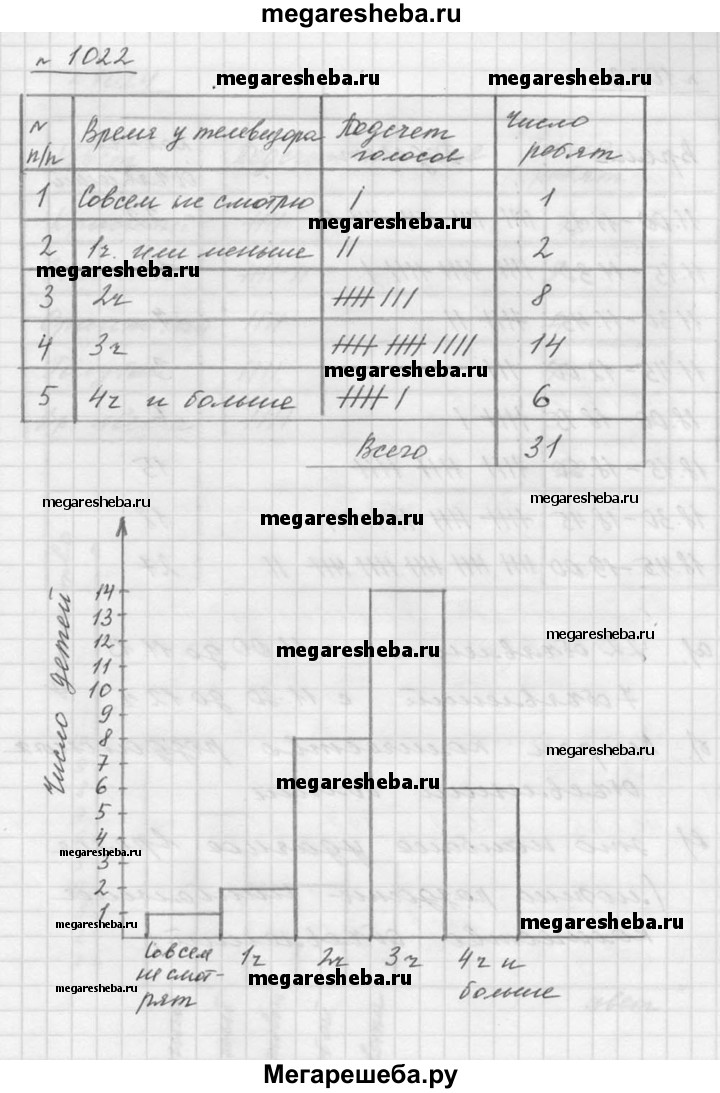 megaresheba.ru
№ 1022
megaresheba.ru megaresheba.ru
№ п/п Время у телевизора Подсчет голосов Число ребят
1 Совсем не смотрю I 1
megaresheba.ru
2 1ч. или меньше II 2
megaresheba.ru
3 2ч 8
4 3ч 14
megaresheba.ru
5 4ч и больше 6
Всего 31
megaresheba.ru megaresheba.ru megaresheba.ru
Число детей
14
13
12
11
10
9
8
7
6
5
4
3
2
1
megaresheba.ru
megaresheba.ru
megaresheba.ru
megaresheba.ru
megaresheba.ru
megaresheba.ru
megaresheba.ru
Совсем не смот-рят 1ч 2ч 3ч 4ч и больше
megaresheba.ru
megaresheba.ru
megaresheba.ru
Мегарешеба.ру